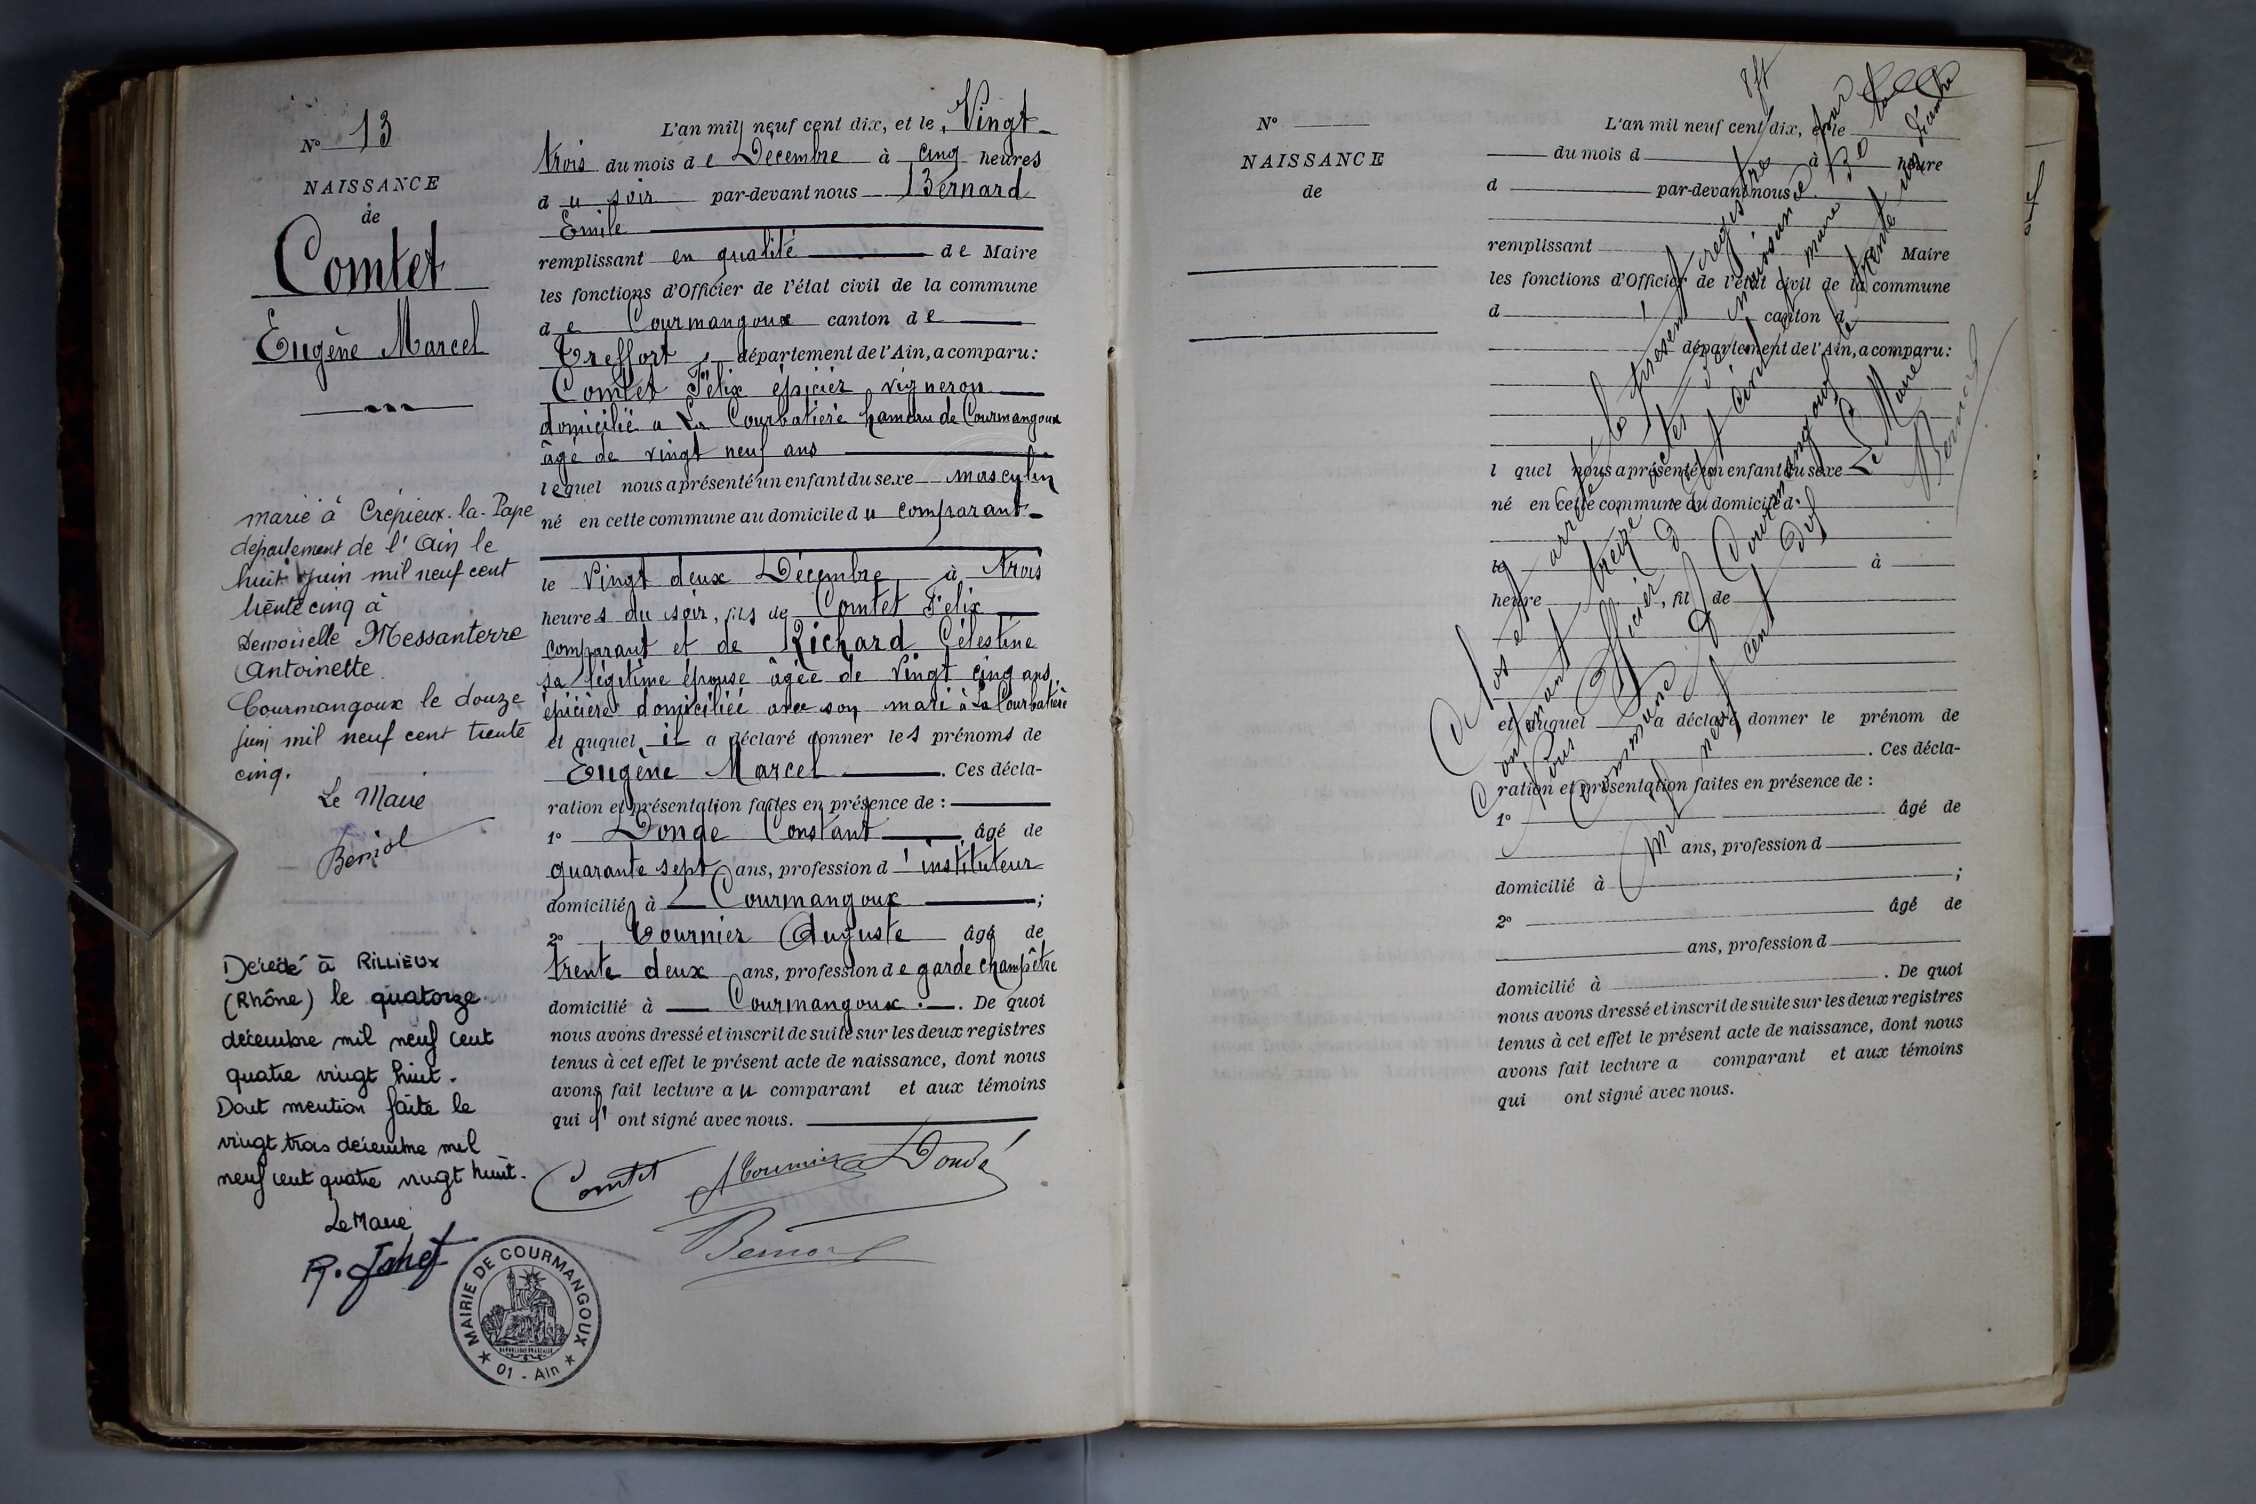 N° 13
NAISSANCE
de
Comtet
Eugène Marcel
marié à Crépieux-la-Pape
département de l'Ain le
huit juin mil neuf cent
trente cinq à
Demoiselle Messanterre
Antoinette.
Courmangoux le douze
juin mil neuf cent trente
cinq.
Le Maire
Décédé à RILLIEUX
(Rhône) le quatorze
décembre mil neuf cent
quatre vingt huit.
Dont mention faite le
vingt trois décembre mil
neuf cent quatre vingt huit.
Le Maire
MAIRIE DE COURMANGOUX
01 - Ain
L'an mil neuf cent dix, et le Vingt
trois du mois de Décembre à cinq heures
du soir par-devant nous Bernard
Emile
remplissant en qualité de Maire
les fonctions d'Officier de l'état civil de la commune
de Courmangoux canton de
Treffort, département de l'Ain, a comparu:
Comtet Félix épicier vigneron
domicilié à La Courbatière hameau de Courmangoux
âgé de vingt neuf ans
lequel nous a présenté un enfant du sexe masculin
né en cette commune au domicile du comparant
le Vingt deux Décembre à trois
heures du soir, fils de Comtet Félix
comparant et de Richard Célestine
sa légitime épouse âgée de Vingt cinq ans,
épicière domiciliée avec son mari à La Courbatière
et auquel il a déclaré donner les prénoms de
Eugène Marcel. Ces décla-
ration et présentation faites en présence de :
1° Donde Constant âgé de
quarante sept ans, profession d'instituteur
domicilié à Courmangoux ;
2° Tournier Auguste âgé de
trente deux ans, profession de garde champêtre
domicilié à Courmangoux. De quoi
nous avons dressé et inscrit de suite sur les deux registres
tenus à cet effet le présent acte de naissance, dont nous
avons fait lecture au comparant et aux témoins
qui ont signé avec nous.
Comtet A Tournier Dondé
Bernard
N°
NAISSANCE
de
L'an mil neuf cent dix, et le
du mois d à heure
d par-devant nous
remplissant Maire
les fonctions d'Officier de l'état civil de la commune
d canton d
département de l'Ain, a comparu:
l quel nous a présenté un enfant du sexe
né en cette commune au domicile d
le à
heure , fil de
et auquel a déclaré donner le prénom de
. Ces décla-
ration et présentation faites en présence de :
1° âgé de
ans, profession d
domicilié à ;
2° âgé de
ans, profession d
domicilié à . De quoi
nous avons dressé et inscrit de suite sur les deux registres
tenus à cet effet le présent acte de naissance, dont nous
avons fait lecture a comparant et aux témoins
qui ont signé avec nous.
Clos et arrêté le présent registre
contenant treize actes de naissance par
Nous Officier de l'état civil maire de la
Commune de Courmangoux le trente un décembre
mil neuf cent dix
Le Maire
Bernard